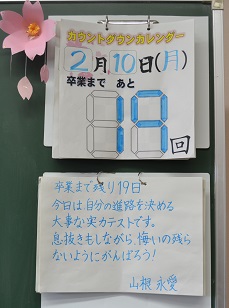 カウントダウンカレンダー
2月10日(月)
卒業まで あと
19回
卒業まで残り19日
今日は、自分の進路を決める
大事な実力テストです。
息抜きもしながら、悔いの残ら
ないようにがんばろう!
山根 永愛